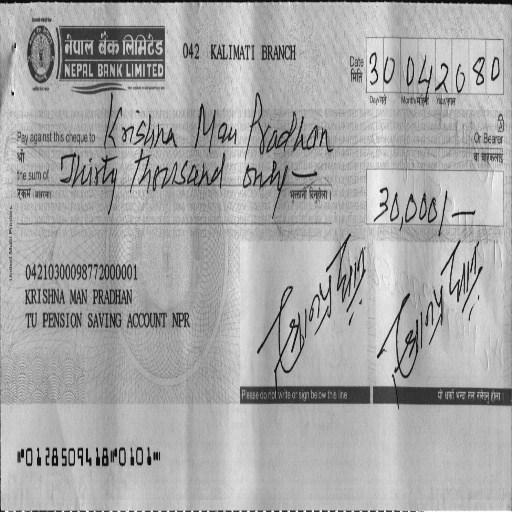 नेपाल बैंक लिमिटेड
NEPAL BANK LIMITED
042 KALIMATI BRANCH
Date
मिति
30 04 2080
Day/गते Month/महिना Year/साल
Pay against this cheque to Krishna Man Pradhan Or Bearer
श्री वा वाहकलाई
the sum of Thirty thousand only —
रकम (अक्षरमा) भुक्तानी दिनुहोला ।
30,000/—
04210300098772000001
KRISHNA MAN PRADHAN
TU PENSION SAVING ACCOUNT NPR
Please do not write or sign below this line
यो धर्को भन्दा तल नलेख्नु होला ।
⑈01285094⑈0101⑈